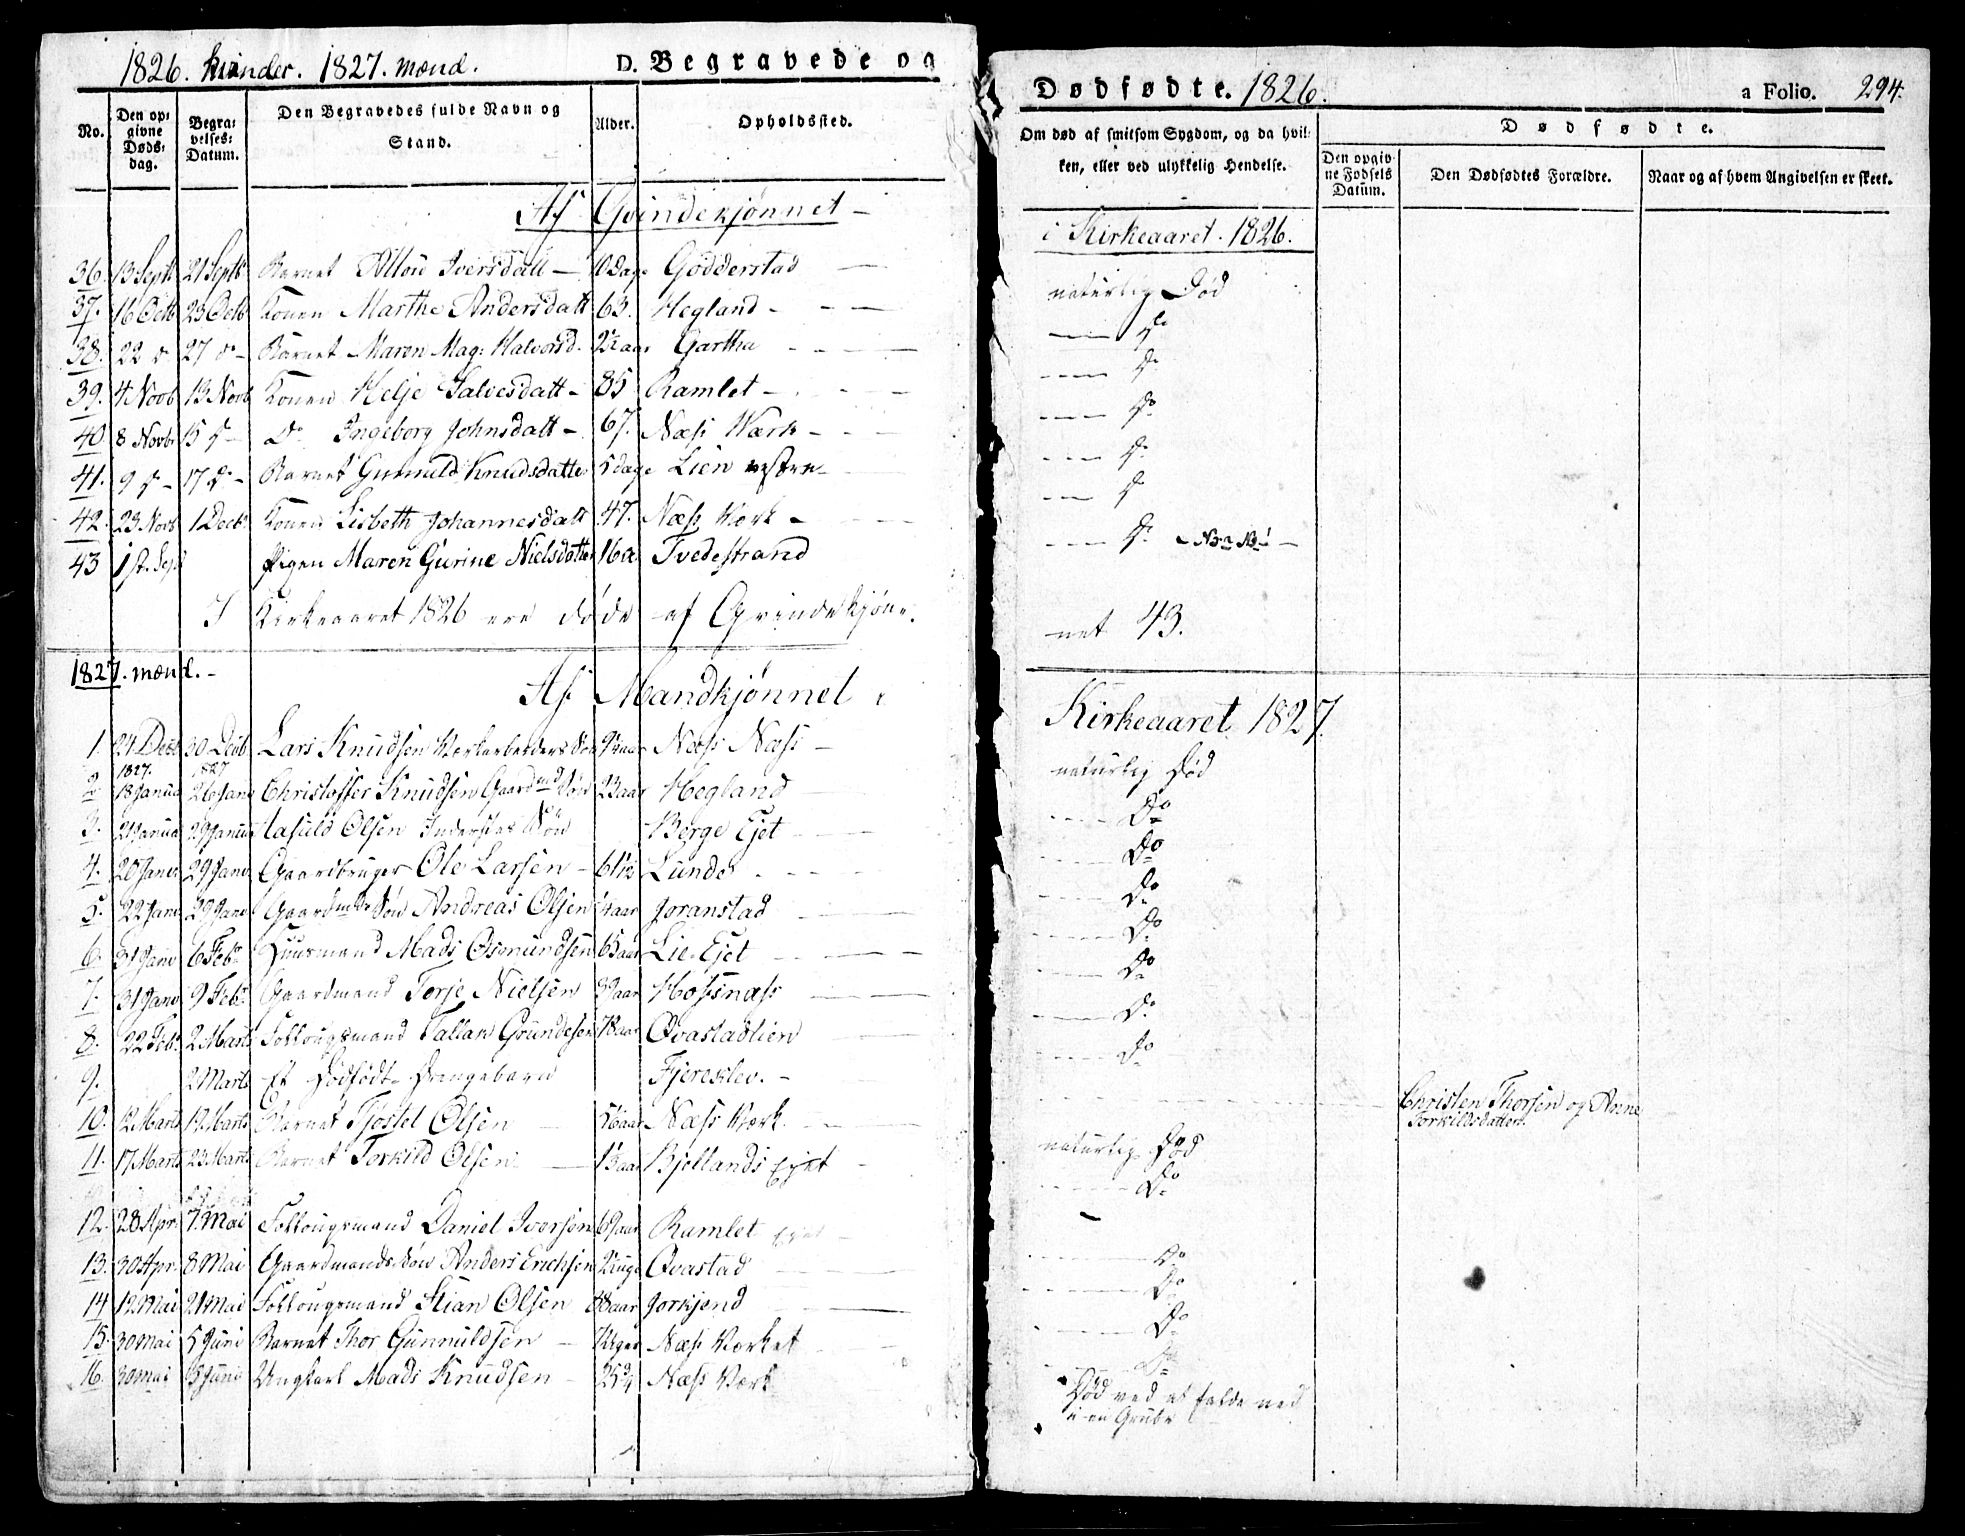 1826. kvinder. 1827. mænd.
D. Begravede og
No.
Den opgivne Dødsdag.
Begravelses-Datum.
Den Begravedes fulde Navn og Stand.
Alder.
Opholdssted.
Af Qvindekjønnet
36. 13 Septb 21 Septb Barnet Iversdatt 10 Dage Godderstad
37. 16 Octb 23 Octb Konen Marthe Andersdatt 63. Hegland
38. 22 do 27 do Barnet Maren Mag: Halvorsd. Gartha
39. 4 Novb 13 Novb Konen Helje Salvesdatt 85 Ramlet
40 8 Novbr 15 do Do Ingeborg Johnsdatt 67. Næss Værk
41. 9 do 17 do Barnet Gunnild Knudsdatter 5 dage Lien vestre
42. 23 Novb 1 Decb Konen Lisbeth Johannesdatt 47. Næss Værk
43 1st. Sept Pigen Maren Gurine Nielsdatter 16 a Tvedestrand
I Kirkeaaret 1826 ere døde af Qvindekjøn-
1827. mænd.
Af Mandkjønnet i
1. 24 Decb 30 Decb Lars Knudsen Værkarbeiders Søn Næss Næss
1827. 1827
2 18 Janua 26 Janu Christoffer Knudsen Gaardmd Søn 23 aar Hegland
3. 21 Janua 29 Janua Olsen Søn Berge Ejet
4. 20 Janu 29 Janu Gaardbruger Ole Larsen 61½ Lunde
5. 22 Janu 29 Janu Gaardmds Søn Andreas Olsen Joranstad
6. 31 Janu 6 Febr Huusmand Mads Osmundsen 65 aar Lie Ejet
7. 31 Janu 9 Febr Gaardmand Terje Nielsen 39 aar Hossnæss
8. 22 Febr 2 Marts Follougsmand Tallak Grundesen 78 aar Qvastadlien
9. 2 Marts Et Dødfødt Drengebarn Fjereklev.
10. 12 Marts 19 Marts Barnet Tjostel Olsen Næss Værk
11. 17 Marts 23 Marts Barnet Torkild Olsen Bjellands Ejet
12. 28 Apr. 7. Mai Follougsmand Daniel Iversen 69 aar Ramlet Ejet
13. 30 Apr. 8 Mai Gaardmands Søn Anders Erichsen Qvastad
14 12 Mai 21 Mai Follougsmand Stian Olsen 88 aar Jorkjend
15. 30 Mai 5 Juni Barnet Thor Gunnuldsen Næss Værket
16. 30 Mai 5 Juni Ungkarl Mads Knudsen Næss Værk
Dødfødte. 1826.
a Folio. 294.
Om død af smitsom Sygdom, og da hvil-
ken, eller ved ulykkelig Hendelse.
Dødfødte.
Den opgivne Fødsels Datum.
Den Dødfødtes Forældre.
Naar og af hvem Angivelsen er skeet.
i Kirkeaaret. 1826.
naturlig Død
do
do
do
do
do
do
net 43.
Kirkeaaret 1827.
naturlig Død
Do
Do
Do
Do
Do
Do
Do
Christen Thorsen og Anne
Torkildsdatter.
naturlig Død
Do
Do
Do
Do
Do
Død ved at falde ned
i en Grube